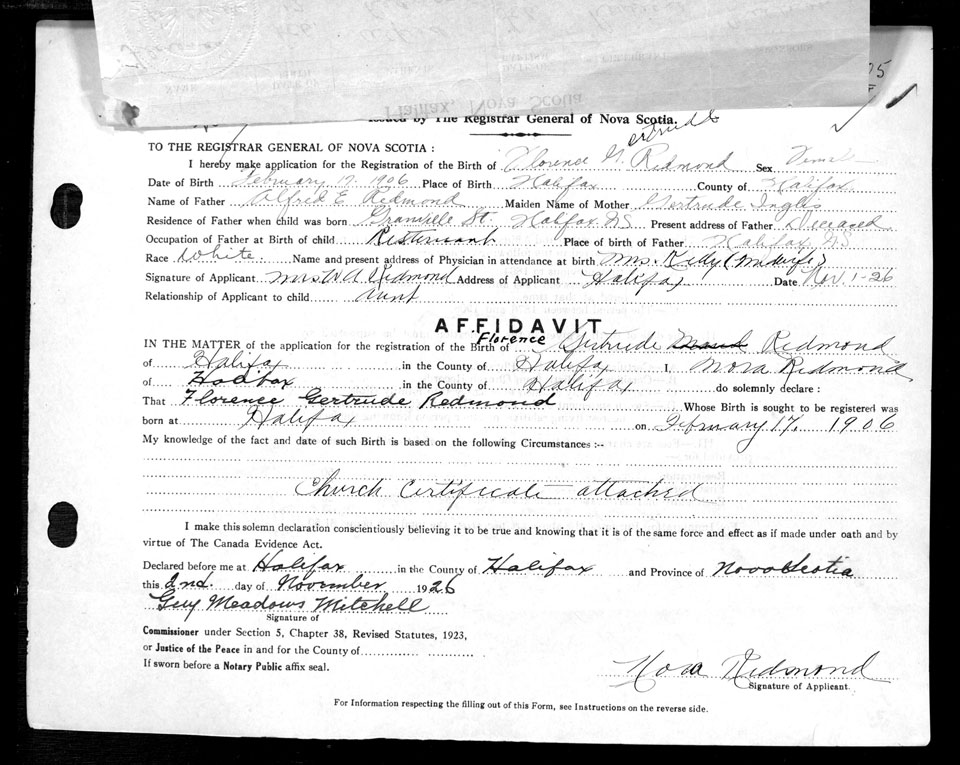 Halifax, Nova Scotia
75
Issued by The Registrar General of Nova Scotia.
TO THE REGISTRAR GENERAL OF NOVA SCOTIA :
ertrude
I hereby make application for the Registration of the Birth of Florence G. Redmond Sex Female
Date of Birth February 17. 1906 Place of Birth Halifax County of Halifax
Name of Father Alfred E Redmond Maiden Name of Mother Gertrude Inglis
Residence of Father when child was born Granville St. Halifax NS Present address of Father Deceased
Occupation of Father at Birth of child Place of birth of Father Halifax NS
Race White. Name and present address of Physician in attendance at birth Mrs. (Midwife)
Signature of Applicant Mrs W A Redmond Address of Applicant Halifax Date Nov. 1-26
Relationship of Applicant to child Aunt
AFFIDAVIT
Florence
IN THE MATTER of the application for the registration of the Birth of Gertrude Redmond
of Halifax in the County of Halifax I, Nora Redmond
of Halifax in the County of Halifax do solemnly declare :
That Florence Gertrude Redmond Whose Birth is sought to be registered was
born at Halifax on February 17. 1906
My knowledge of the fact and date of such Birth is based on the following Circumstances :--
Church Certificate attached
I make this solemn declaration conscientiously believing it to be true and knowing that it is of the same force and effect as if made under oath and by
virtue of The Canada Evidence Act.
Declared before me at Halifax in the County of Halifax and Province of Nova Scotia
this 2nd. day of November 1926
Guy Meadows Mitchell
Signature of
Commissioner under Section 5, Chapter 38, Revised Statutes, 1923,
or Justice of the Peace in and for the County of
If sworn before a Notary Public affix seal.
Nora Redmond
Signature of Applicant.
For Information respecting the filling out of this Form, see Instructions on the reverse side.